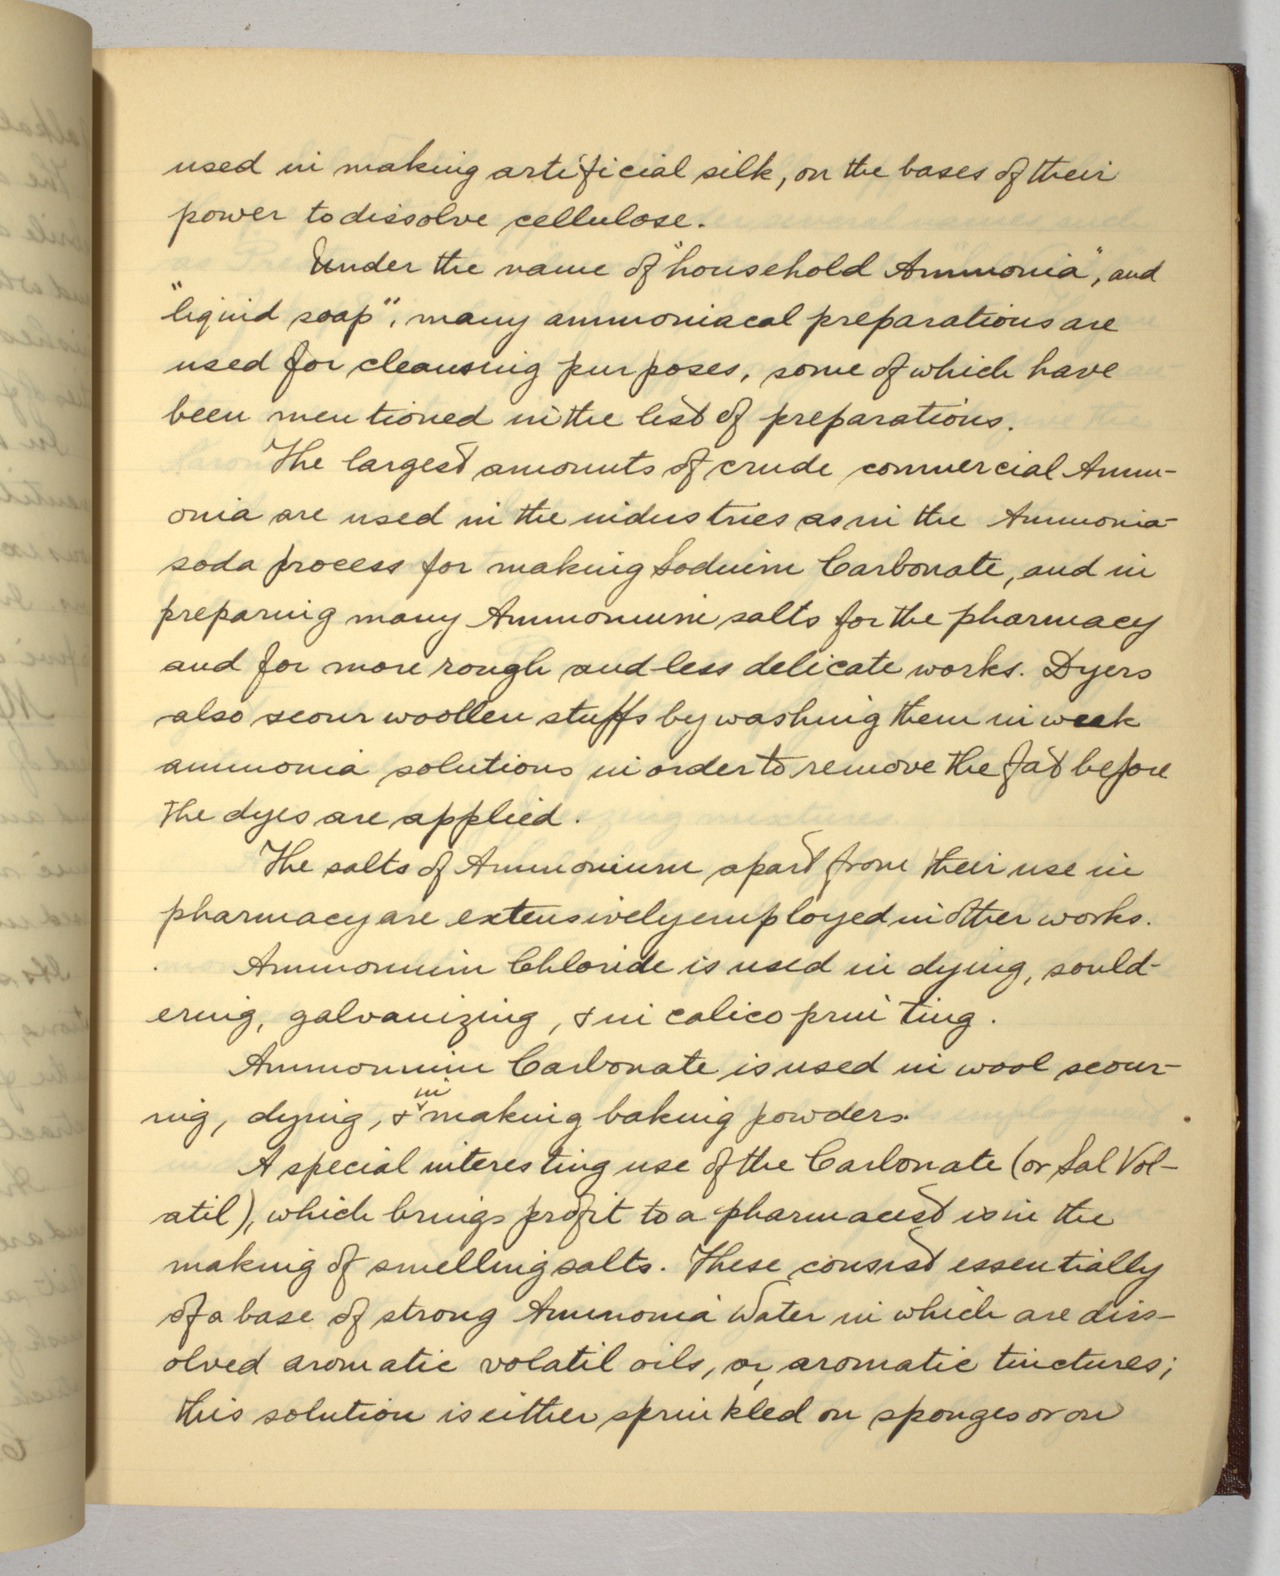 used in making artificial silk, on the bases of their
power to dissolve cellulose.
Under the name of "household Ammonia", and
"liquid soap", many ammoniacal preparations are
used for cleansing purposes, some of which have
been mentioned in the list of preparations.
The largest amounts of crude commercial Amm-
onia are used in the industries as in the Ammonia-
soda process for making Sodium Carbonate, and in
preparing many Ammonium salts for the pharmacy
and for more rough and less delicate works. Dyers
also scour woollen stuffs by washing them in weak
ammonia solutions in order to remove the fat before
the dyes are applied.
The salts of Ammonium apart from their use in
pharmacy are extensively employed in other works.
Ammonium Chloride is used in dying, sould-
ering, galvanizing, & in calico printing.
Ammonium Carbonate is used in wool scour-
ing, dying, & in making baking powders.
A special interesting use of the Carbonate (or Sal Vol-
atil), which brings profit to a pharmacist is in the
making of smelling salts. These consist essentially
of a base of strong Ammonia Water in which are diss-
olved aromatic volatil oils, or, aromatic tinctures;
this solution is either sprinkled on sponges or on